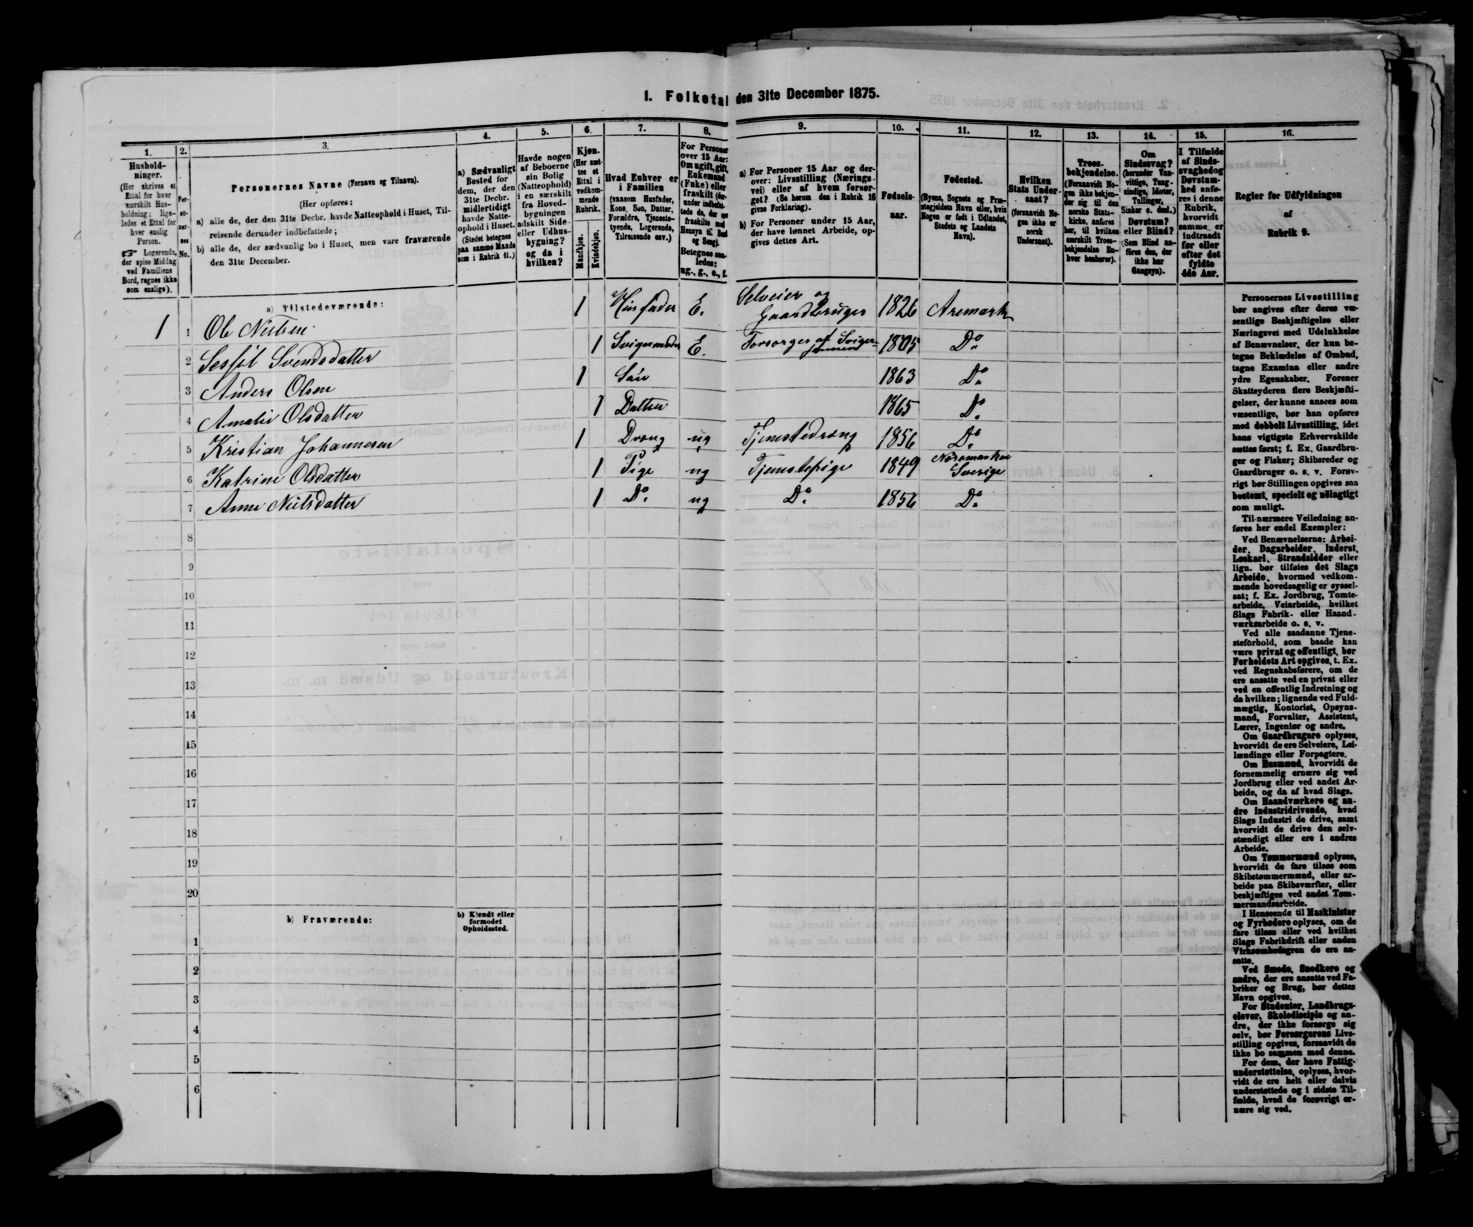 1. Folketal den 31te December 1875.
1.
Hushold-
ninger.
(Her skrives et
Ettal for hver
særskilt Hus-
holdning; lige-
ledes et Ettal for
hver enslig
Person.
☞ Logerende,
der spise Middag
ved Familiens
Bord, regnes ikke
som enslige).
2.
Per-
so-
ner-
nes
No.
3.
Personernes Navne (Fornavn og Tilnavn).
(Her opføres:
a) alle de, der den 31te Decbr. havde Natteophold i Huset, Til-
reisende derunder indbefattede;
b) alle de, der sædvanlig bo i Huset, men vare fraværende
den 31te December.
4.
a) Sædvanligt
Bosted for
dem, der den
31te Decbr.
midlertidigt
havde Natte-
ophold i Huset.
(Stedet betegnes
paa samme Maade
som i Rubrik 11.)
5.
Havde nogen
af Beboerne
sin Bolig
(Natteophold)
i en særskilt
fra Hoved-
bygningen
adskilt Side-
eller Udhus-
bygning?
og da i
hvilken?
6.
Kjøn.
(Her sæt-
tes et
Ettal i
vedkom-
mende
Rubrik.
Mandkjøn.
Kvindekjøn.
7.
Hvad Enhver er
i Familien
(saasom Husfader,
Kone, Søn, Datter,
Forældre, Tjeneste-
tyende, Logerende,
Tilreisende osv.)
8.
For Personer
over 15 Aar:
Om ugift, gift,
Enkemand
(Enke) eller
fraskilt
Betegnes saa-
ledes:
ug., g., e., f.
9.
a) For Personer 15 Aar og der-
over: Livsstilling (Nærings-
vei) eller af hvem forsør-
get? (Se herom den i Rubrik 16
givne Forklaring).
b) For Personer under 15 Aar,
der have lønnet Arbeide, op-
gives dettes Art.
10.
Fødsels-
aar.
11.
Fødested.
(Byens, Sognets og Præ-
stegjældets Navn eller, hvis
Nogen er født i Udlandet,
Stedets og Landets
Navn).
12.
Hvilken
Stats Under-
saat?
(forsaavidt No-
gen ikke er
norsk
Undersaat).
13.
Troes-
bekjendelse.
(Forsaavidt No-
gen ikke bekjen-
der sig til den
norske Stats-
kirke, anføres
her, til hvilken
særskilt Troes-
bekjendelse En-
hver henhører).
14.
Om
Sindssvag?
(herunder Van-
vittige, Tung-
sindige, Idioter,
Tullinger,
Sinker o. desl.)
Døvstum?
eller Blind?
(Som Blind an-
føres den, der
ikke har
Gangsyn).
15.
I Tilfælde
af Sinds-
svaghed og
Døvstum-
hed anfø-
res i denne
Rubrik,
hvorvidt
samme er
indtraadt
før eller
efter det
fyldte
4de Aar.
16.
Regler for Udfyldningen
af
Rubrik 9.
a) Tilstedeværende:
1 1 Ole Nielsen 1 Husfader E. Selveier og Gaardbruger 1826 Aremark
2 Sessil Svendsdatter 1 Svigermoder E. Forsørges af Svigersønnen 1805 Do
3 Anders Olsen 1 Søn 1863 Do
4 Amalie Olsdatter 1 Datter 1865 Do
5 Kristian Johannesen 1 Dreng ug Tjenestedreng 1856 Do
6 Katrine Olsdatter 1 Pige ug Tjenestepige 1849 Nösemarken Sverige
7 Anne Nielsdatter 1 Do. ug Do. 1856 Do
8
9
10
11
12
13
14
15
16
17
18
19
20
b) Fraværende:
b) Kjendt eller
formodet
Opholdssted.
1
2
3
4
5
6
Personernes Livsstilling
bør angives efter deres væ-
sentlige Beskjæftigelse eller
Næringsvei med Udelukkelse
af Benævnelser, der kun be-
tegne Beklædelse af Ombud,
tagne Examina eller andre
ydre Egenskaber. Forener
Skatteyderen flere Beskjæfti-
gelser, der kunne ansees som
væsentlige, bør han opføres
med dobbelt Livsstilling, idet
hans vigtigste Erhvervskilde
sættes først; f. Ex. Gaardbru-
ger og Fisker; Skibsreder og
Gaardbruger o. s. v. Forøv-
rigt bør Stillingen opgives saa
bestemt, specielt og nøiagtigt
som muligt.
Til nærmere Veiledning an-
føres her endel Exempler:
Ved Benævnelserne: Arbei-
der, Dagarbeider, Inderst,
Løskarl, Strandsidder eller
lign. bør tilføies det Slags
Arbeide, hvormed vedkom-
mende hovedsagelig er syssel-
sat; f. Ex. Jordbrug, Tomte-
arbeide, Veiarbeide, hvilket
Slags Fabrik- eller Haand-
værksarbeide o. s. v.
Ved alle saadanne Tjene-
steforhold, som baade kan
være privat og offentligt, bør
Forholdets Art opgives, t. Ex.
ved Regnskabsførere, om de
ere ansatte ved en privat eller
ved en offentlig Indretning og
da hvilken; lignende ved Fuld-
mægtig, Kontorist, Opsyns-
mand, Forvalter, Assistent,
Lærer, Ingeniør og andre.
Om Gaardbrugere oplyses,
hvorvidt de ere Selveiere, Lei-
lændinge eller Forpagtere.
Om Husmænd, hvorvidt de
fornemmelig ernære sig ved
Jordbrug eller ved andet Ar-
beide, og da af hvad Slags.
Om Haandværkere og an-
dre Industridrivende, hvad
Slags Industri de drive, samt
hvorvidt de drive den selv-
stændigt eller ere i andres
Arbeide.
Om Tømmermænd oplyses,
hvorvidt de fare tilsøs som
Skibstømmermænd, eller ar-
beide paa Skibsværfter, eller
beskjæftiges ved andet Tøm-
mermandsarbeide.
I Henseende til Maskinister
og Fyrbødere oplyses, om de
fare tilsøs eller ved hvilket
Slags Fabrikdrift eller anden
Virksomhedsgren de ere an-
satte.
Ved Smede, Snedkere og
andre, der ere ansatte ved Fa-
briker og Brug, bør dettes
Navn opgives.
For Studenter, Landbrugs-
elever, Skoledisciple og an-
dre, der ikke forsørge sig
selv, bør Forsørgerens Livs-
stilling opgives, forsaavidt de
ikke bo sammen med denne.
For dem, der have Fattig-
understøttelse, oplyses, hvor-
vidt de ere helt eller delvis
understøttede og i sidste Til-
fælde, hvad de forøvrigt er-
nære sig ved.